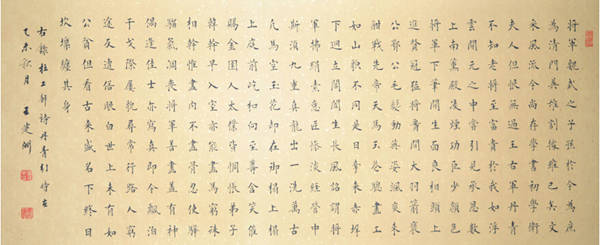 將軍魏武之子孫於今為庶
為清門英雄割據雖已矣文
采風流今尚存學書初學衛
夫人但恨無過王右軍丹青
不知老將至富貴於我如浮
雲開元之中常引見承恩數
上南薰殿凌煙功臣少顏色
將軍下筆開生面良相頭上
進賢冠猛將腰間大羽箭褒
公鄂公毛髮動英姿颯爽來
酣戰先帝天馬玉花驄畫工
如山貌不同是日牽來赤墀
下迥立閶闔生長風詔謂將
軍拂絹素意匠慘澹經營中
斯須九重真龍出一洗萬古
凡馬空玉花卻在御榻上榻
上庭前屹相向至尊含笑催
賜金圉人太僕皆惆悵弟子
韓幹早入室亦能畫馬窮殊
相幹惟畫肉不畫骨忍使驊
騮氣凋喪將軍善畫蓋有神
偶逢佳士亦寫真即今漂泊
干戈際屢貌尋常行路人窮
途反遭俗眼白世上未有如
公貧但看古來盛名下終日
坎壈纏其身
右錄杜工部詩丹青引時在
乙未秋月 王建